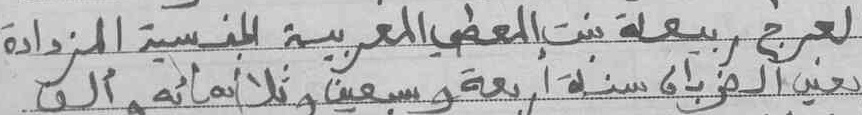 لعرج ربيعة بنت المعطي المغربية الجنسية المزدادة
بعين الخزبان سنة أربعة وسبعين وثلاثمائة وألف